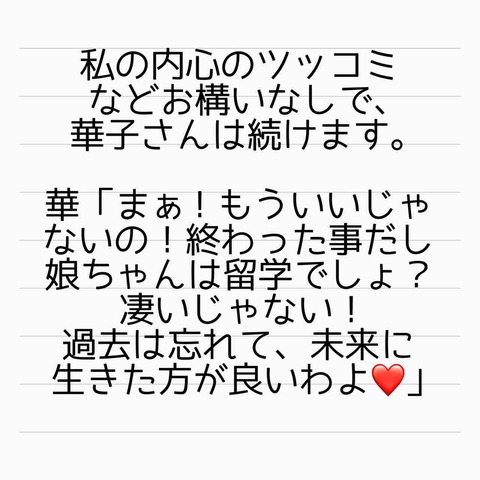 私の内心のツッコミ
などお構いなしで、
華子さんは続けます。
華「まぁ！もういいじゃ
ないの！終わった事だし
娘ちゃんは留学でしょ？
凄いじゃない！
過去は忘れて、未来に
生きた方が良いわよ❤️」